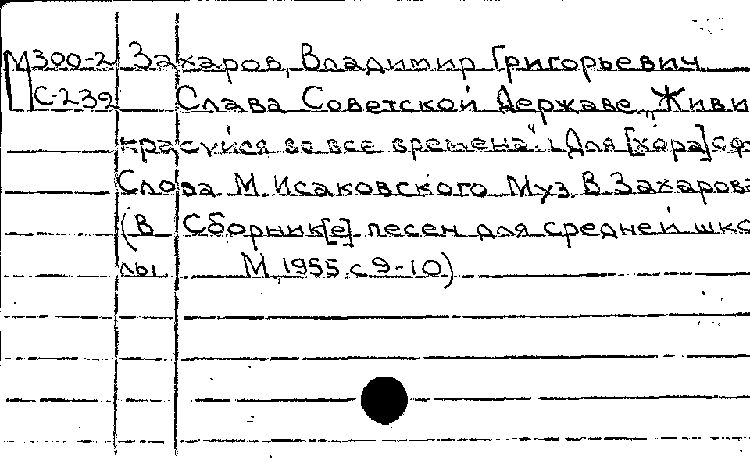 М300-2 Захаров, Владимир Григорьевич
С-239 Слава Советской Державе „Живи
красуйся во все времена". Для [хора] с ф
Слова М. Исаковского Муз В. Захарова
(В Сборник[е] песен для средней шко
лы М, 1955 с 9-10)